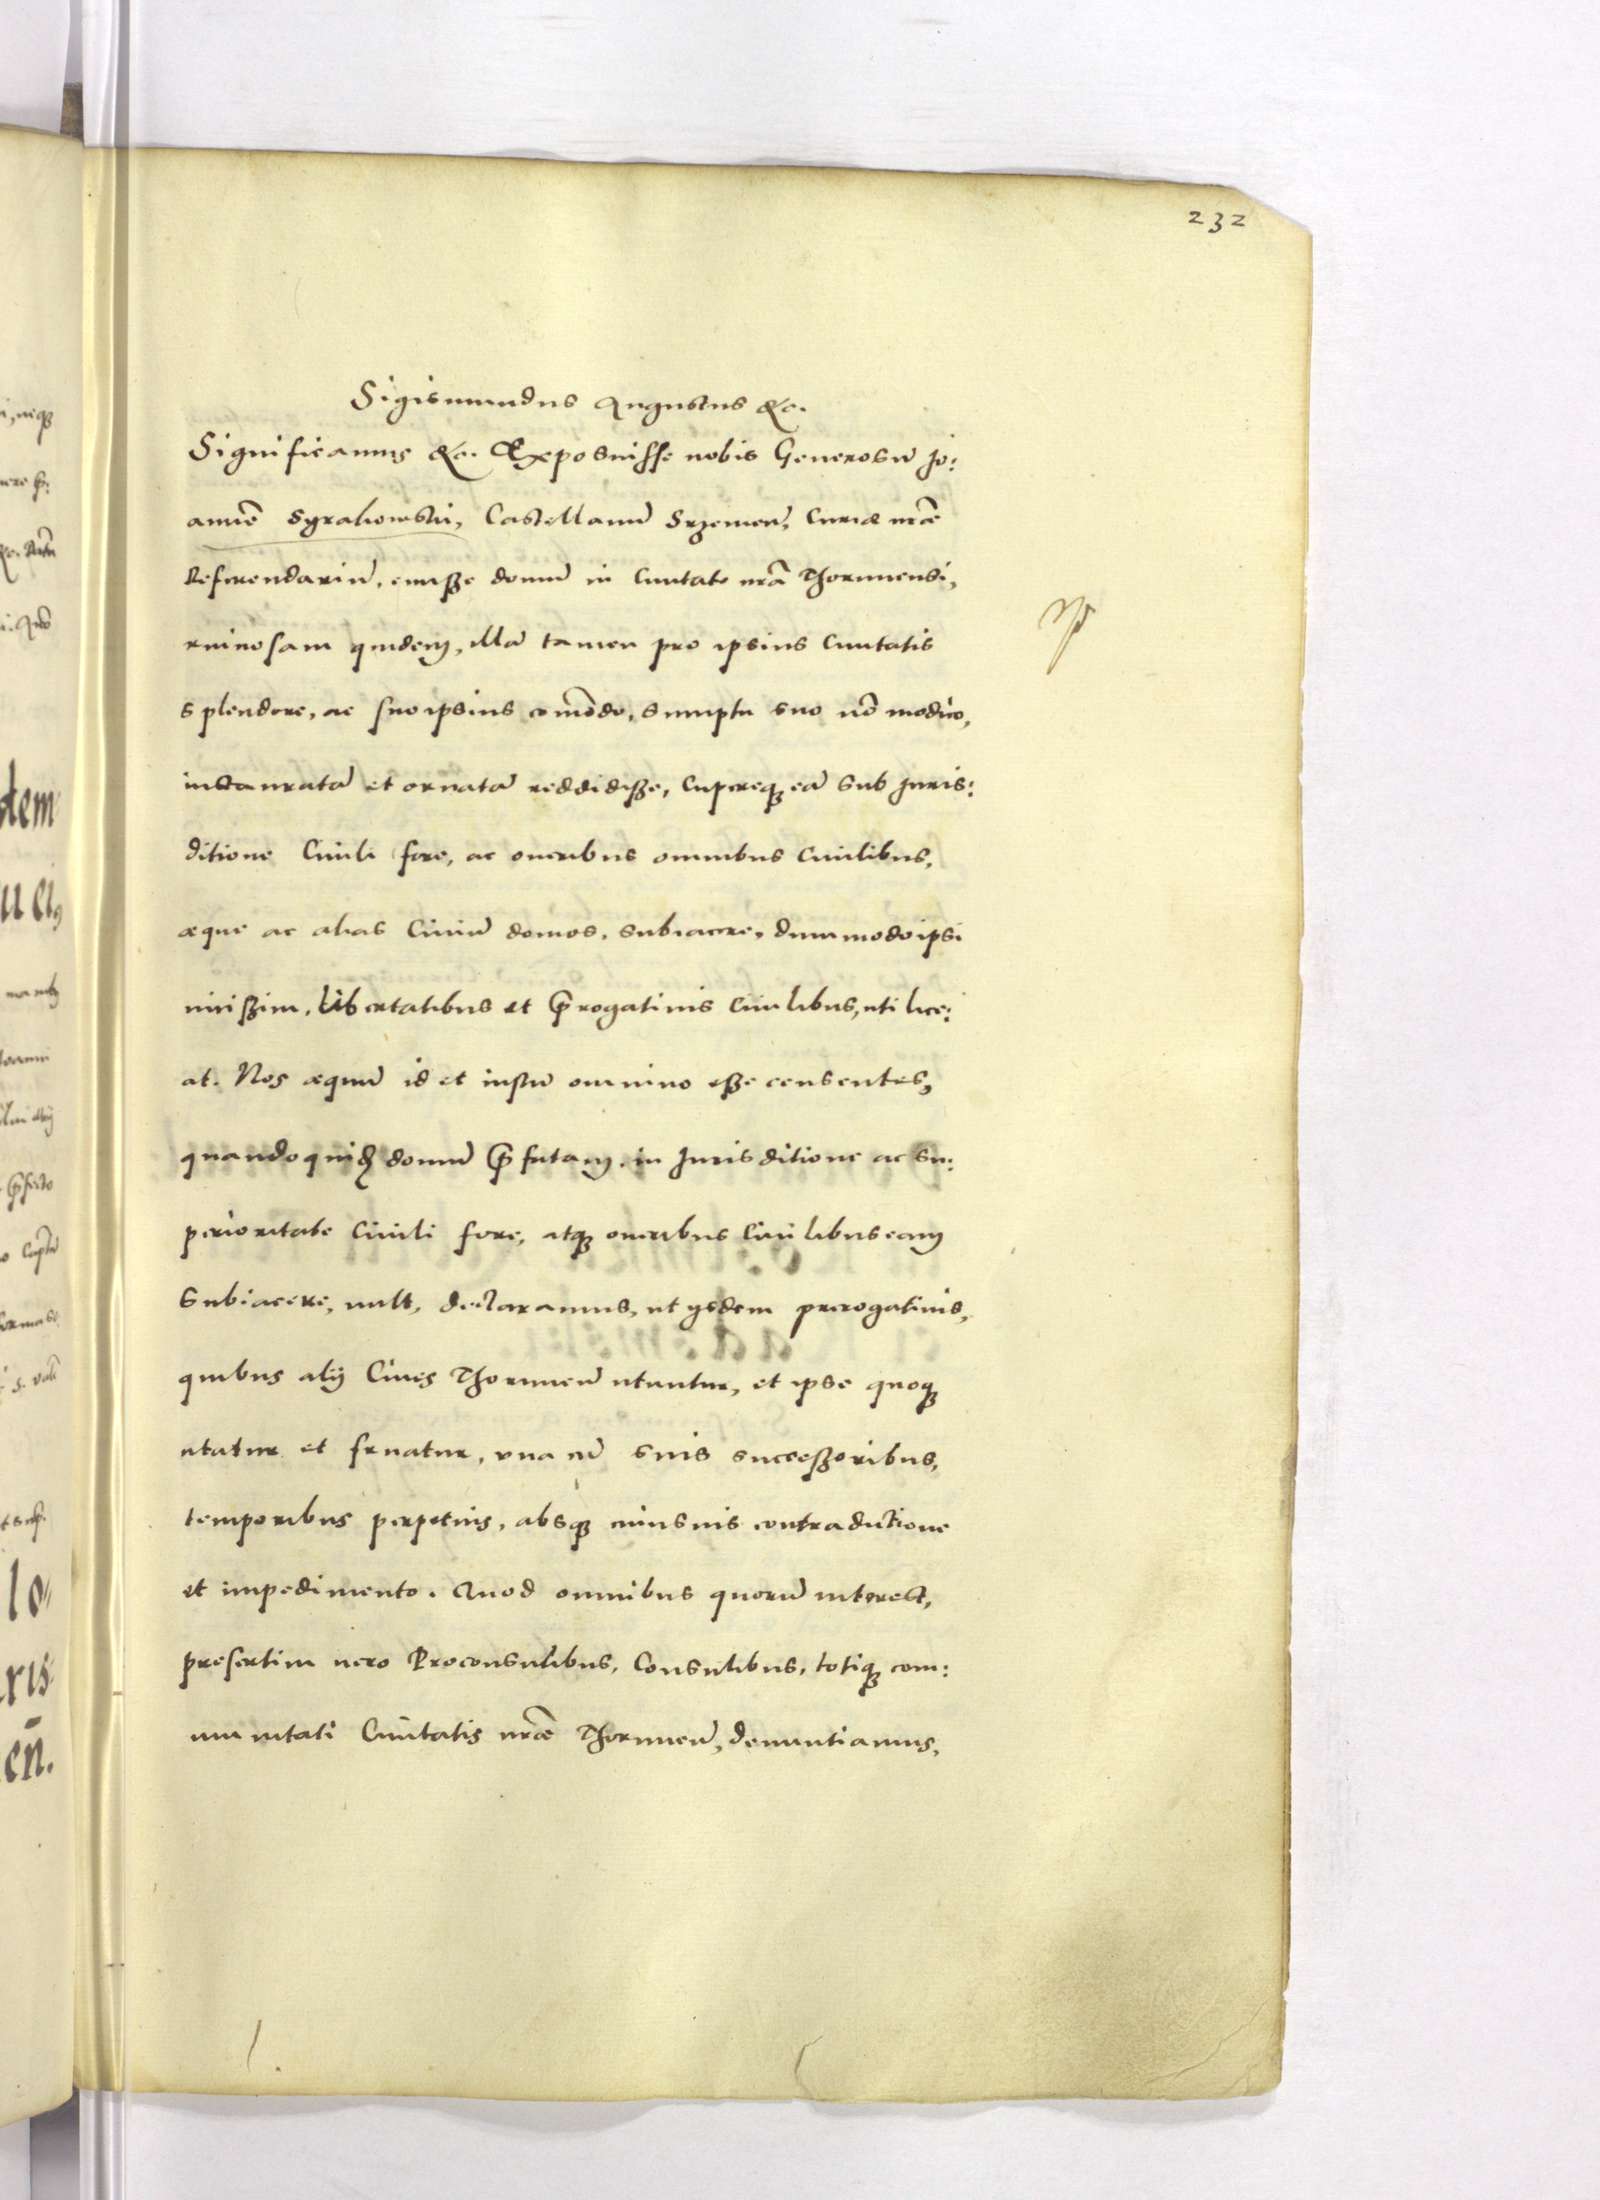 232
Sigismundus Augustus &c.
Significamus &c. Exposuisse nobis Generosū Jo:
annē Syrakowski, Castellanū Srzemeň, Curiæ nr̄æ
Referendariū, emisse domū in Ciuitate nr̄a Thorunensi,
ruinosam quidem, illā tamen pro ipsius Ciuitatis
splendore, ac suo ipsius cōmodo, sumptu suo nō modico,
instauratā et ornatā reddidisse, Cupereq; eā sub Juris:
ditione Ciuili fore, ac oneribus omnibus Ciuilibus,
æque ac alias Ciuiū domos, subiacere, dummodo ipsi
uicissim, Libertatibus et p̄rogatiuis Ciuilibus, uti lice:
at. Nos æquū id et iustū omnino esse censentes,
quandoquidē domū p̄fatam, in Jurisditione ac su:
perioritate Ciuili fore, atq; oneribus Ciuilibus eam
subiacere, uult, declaramus, ut ijsdem prerogatiuis,
quibus alij Ciues Thorunen̄ utuntur, et ipse quoq;
utatur et fruatur, una cū suis successoribus,
temporibus perpetuis, absq; cuiusuis contradictione
et impedimento. Quod omnibus quorū interest,
presertim uero Proconsulibus, Consulibus, totiq; com:
munitati Ciuitatis nr̄æ Thorunen̄, denuntiamus,